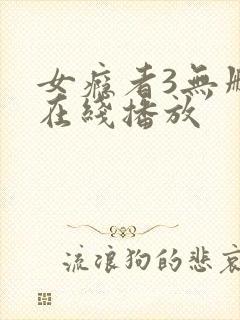 女瘾者3無删
在綫播放
流浪狗的悲哀